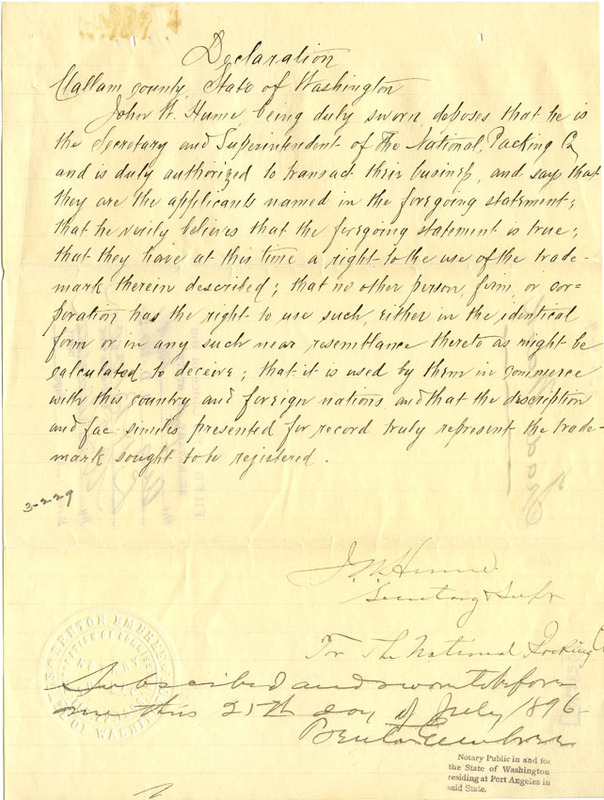 Declaration
Callam county, State of Washington
John W. Hume being duly sworn, deposes that he is
the Secretary and Superintendent of The National Packing Co
and is duly authorized to transact their business, and say that
they are the applicants named in the foregoing statement;
that he verily believes that the foregoing statement is true;
that they have at this time a right to the use of the trade-
mark therein described; that no other person, firm, or cor=
poration has the right to use such, either in the identical
form or in any such near resemblance thereto as might be
calculated to deceive; that it is used by them in commerce
with this country and foreign nations and that the description
and fac similes presented for record truly represent the trade-
mark sought to be registered.
3-229
J W Hume
Secretary & Supt
For The National Packing
BENTON EMBREE
NOTARY
WASHINGTON
Subscribed and sworn to before
me this 25th day of July 1896
Benton Embree
Notary Public in and for
the State of Washington
residing at Port Angeles in
said State.